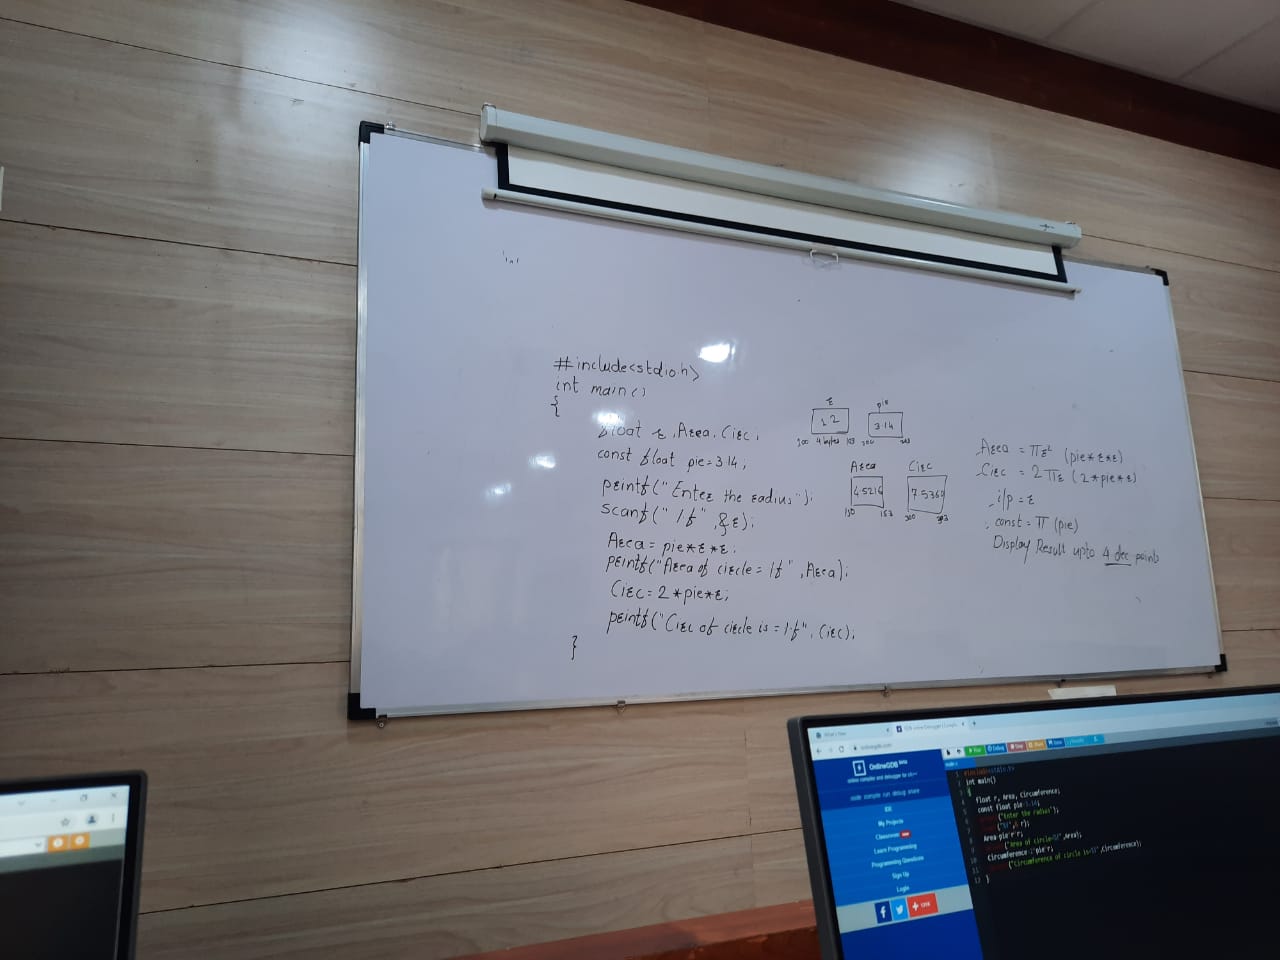 #include<stdio.h>
int main()
{
float r, Area, Circ;
const float pie=3.14;
printf("Enter the radius");
scanf("%f", &r);
Area=pie*r*r;
printf("Area of circle=%f", Area);
Circ=2*pie*r;
printf("Circ of circle is=%f", Circ);
}
r
1.2
4 bytes
pie
3.14
Area
4.5216
150 153
Circ
7.5360
Area = πr² (pie*r*r)
Circ = 2πr (2*pie*r)
i/p = r
const = π (pie)
Display Result upto 4 dec points
onlinegdb.com
OnlineGDB beta
online compiler and debugger for c/c++
code. compile. run. debug. share.
IDE
My Projects
Classroom new
Learn Programming
Programming Questions
Sign Up
Login
Run Debug Stop Share Save
main.c
#include<stdio.h>
int main()
{
float r, Area, Circumference;
const float pie=3.14;
("Enter the radius");
Area=pie*r*r;
("Area of circle=%f",Area);
Circumference=2*pie*r;
("Circumference of circle is=%f",Circumference);
}